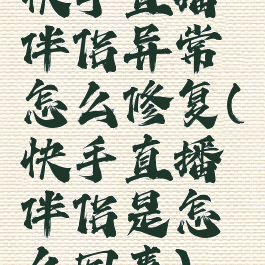 快手直播
伴侣异常
怎么修复(
快手直播
伴侣是怎
么回事)